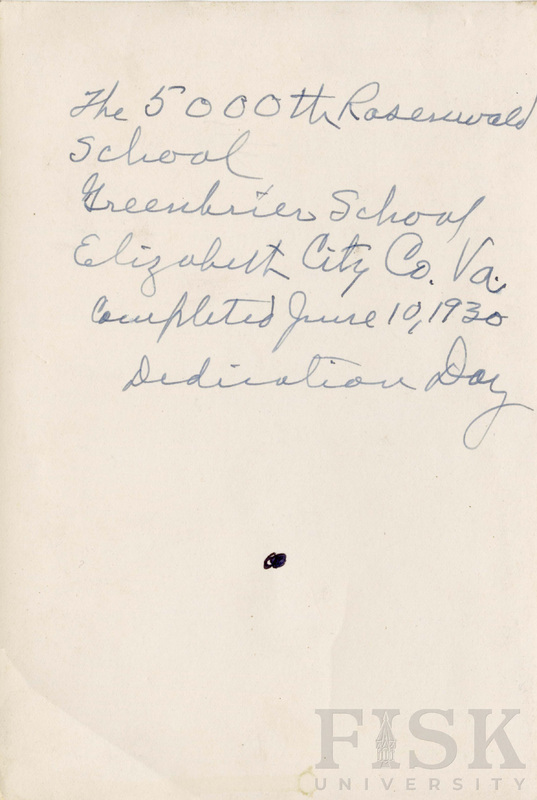 The 5000th Rosenwald
School
Greenbrier School
Elizabeth City Co. Va.
Completed June 10, 1930
Dedication Day
FISK
UNIVERSITY